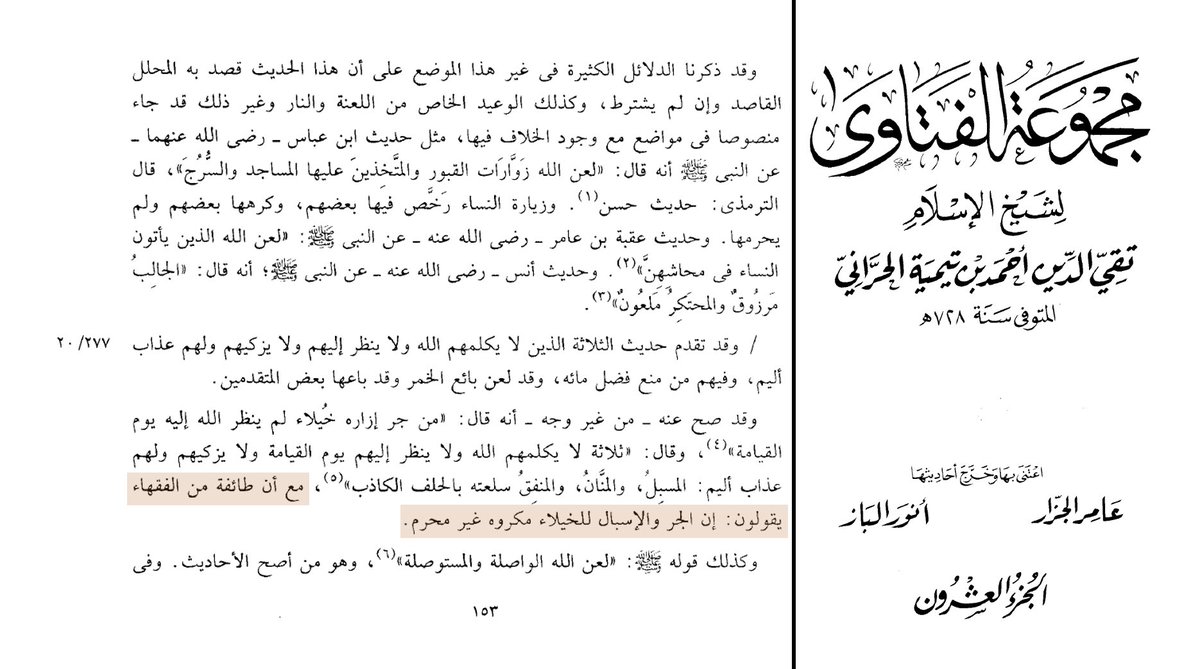 مجموعة الفتاوى
لشيخ الإسلام
تقي الدين أحمد بن تيمية الحراني
المتوفى سنة ٧٢٨ه
اعتنى بها وخرج أحاديثها
عامر الجزار أنور الباز
الجزء العشرون
وقد ذكرنا الدلائل الكثيرة فى غير هذا الموضع على أن هذا الحديث قصد به المحلل
القاصد وإن لم يشترط، وكذلك الوعيد الخاص من اللعنة والنار وغير ذلك قد جاء
منصوصا فى مواضع مع وجود الخلاف فيها، مثل حديث ابن عباس ـ رضى الله عنهما ـ
عن النبى ﷺ أنه قال: «لعن الله زَوَّارَات القبور والمتَّخِذينَ عليها المساجد والسُّرُجَ»، قال
الترمذى: حديث حسن(١). وزيارة النساء رَخَّص فيها بعضهم، وكرهها بعضهم ولم
يحرمها. وحديث عقبة بن عامر ـ رضى الله عنه ـ عن النبى ﷺ: «لعن الله الذين يأتون
النساء فى محاشهِنَّ»(٢). وحديث أنس ـ رضى الله عنه ـ عن النبى ﷺ؛ أنه قال: «الجالِبُ
مَرزُوقٌ والمحتَكِرُ مَلعُونٌ»(٣).
/ وقد تقدم حديث الثلاثة الذين لا يكلمهم الله ولا ينظر إليهم ولا يزكيهم ولهم عذاب ٢٠/٢٧٧
أليم، وفيهم من منع فضل مائه، وقد لعن بائع الخمر وقد باعها بعض المتقدمين.
وقد صح عنه ـ من غير وجه ـ أنه قال: «من جر إزاره خُيلاء لم ينظر الله إليه يوم
القيامة»(٤)، وقال: «ثلاثة لا يكلمهم الله ولا ينظر إليهم يوم القيامة ولا يزكيهم ولهم
عذاب أليم: المسبِلُ، والمنَّانُ، والمنفِقُ سلعته بالحلف الكاذب»(٥)، مع أن طائفة من الفقهاء
يقولون: إن الجر والإسبال للخيلاء مكروه غير محرم.
وكذلك قوله ﷺ: «لعن الله الواصلة والمستوصلة»(٦)، وهو من أصح الأحاديث. وفى
١٥٣